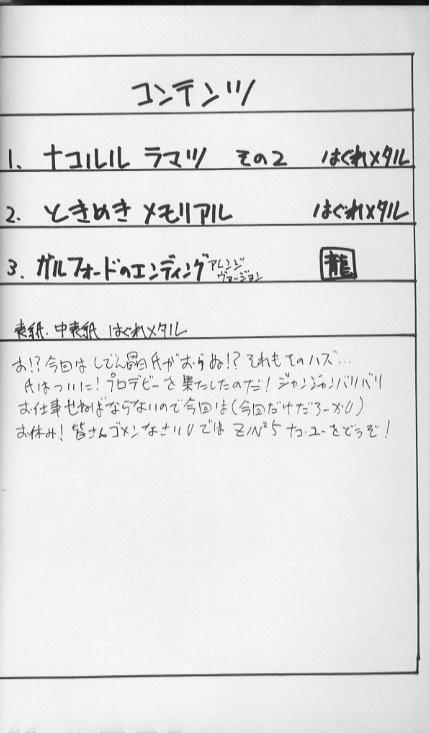 コンテンツ
1. ナコルル ラマツ その2 はぐれメタル
2. ときめき メモリアル はぐれメタル
3. ガルフォードのエンディング アレンジ ヴァージョン 龍
表紙・中表紙 はぐれメタル
お!? 今回は しでん晶氏がおらぬ!? それもそのハズ…
氏はついに! プロデビーを果たしたのだ! ジャンジャンバリバリ
お仕事せねばならないので今回は(今回だけだろーか)
お休み! 皆さんゴメンなさい では Z/N²5 ナコ・ユーをどうぞ!